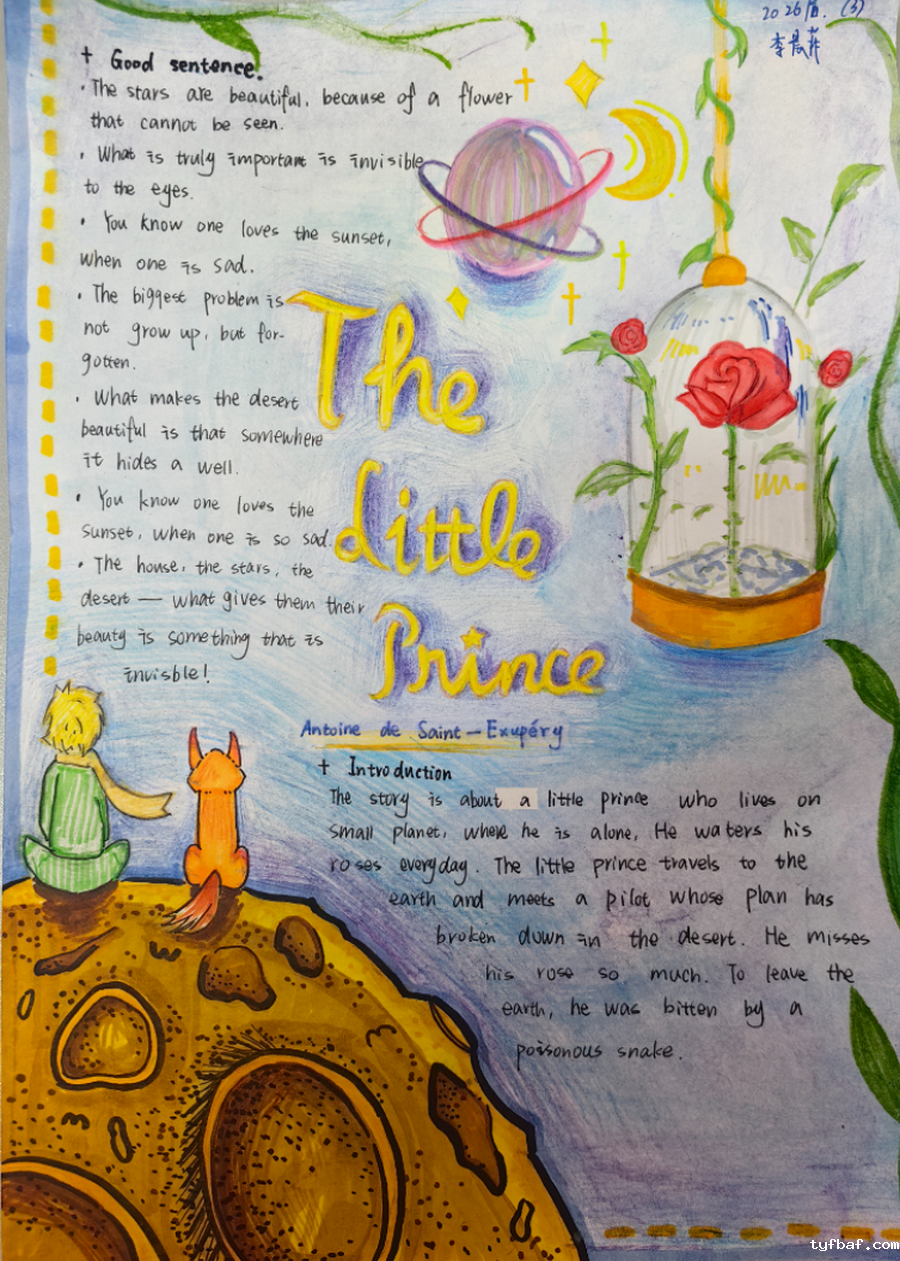 2026届. (3)
李晨菲
+ Good sentence.
· The stars are beautiful, because of a flower
that cannot be seen.
· What is truly important is invisible
to the eyes.
· You know one loves the sunset,
when one is sad.
· The biggest problem is
not grow up, but for-
gotten.
· What makes the desert
beautiful is that somewhere
it hides a well.
· You know one loves the
sunset, when one is so sad.
· The house, the stars, the
desert — what gives them their
beauty is something that is
invisble!
The
Little
Prince
Antoine de Saint-Exupéry
+ Introduction
The story is about a little prince who lives on
small planet, where he is alone, He waters his
roses everyday. The little prince travels to the
earth and meets a pilot whose plan has
broken down in the desert. He misses
his rose so much. To leave the
earth, he was bitten by a
poisonous snake.
tyfbaf.com